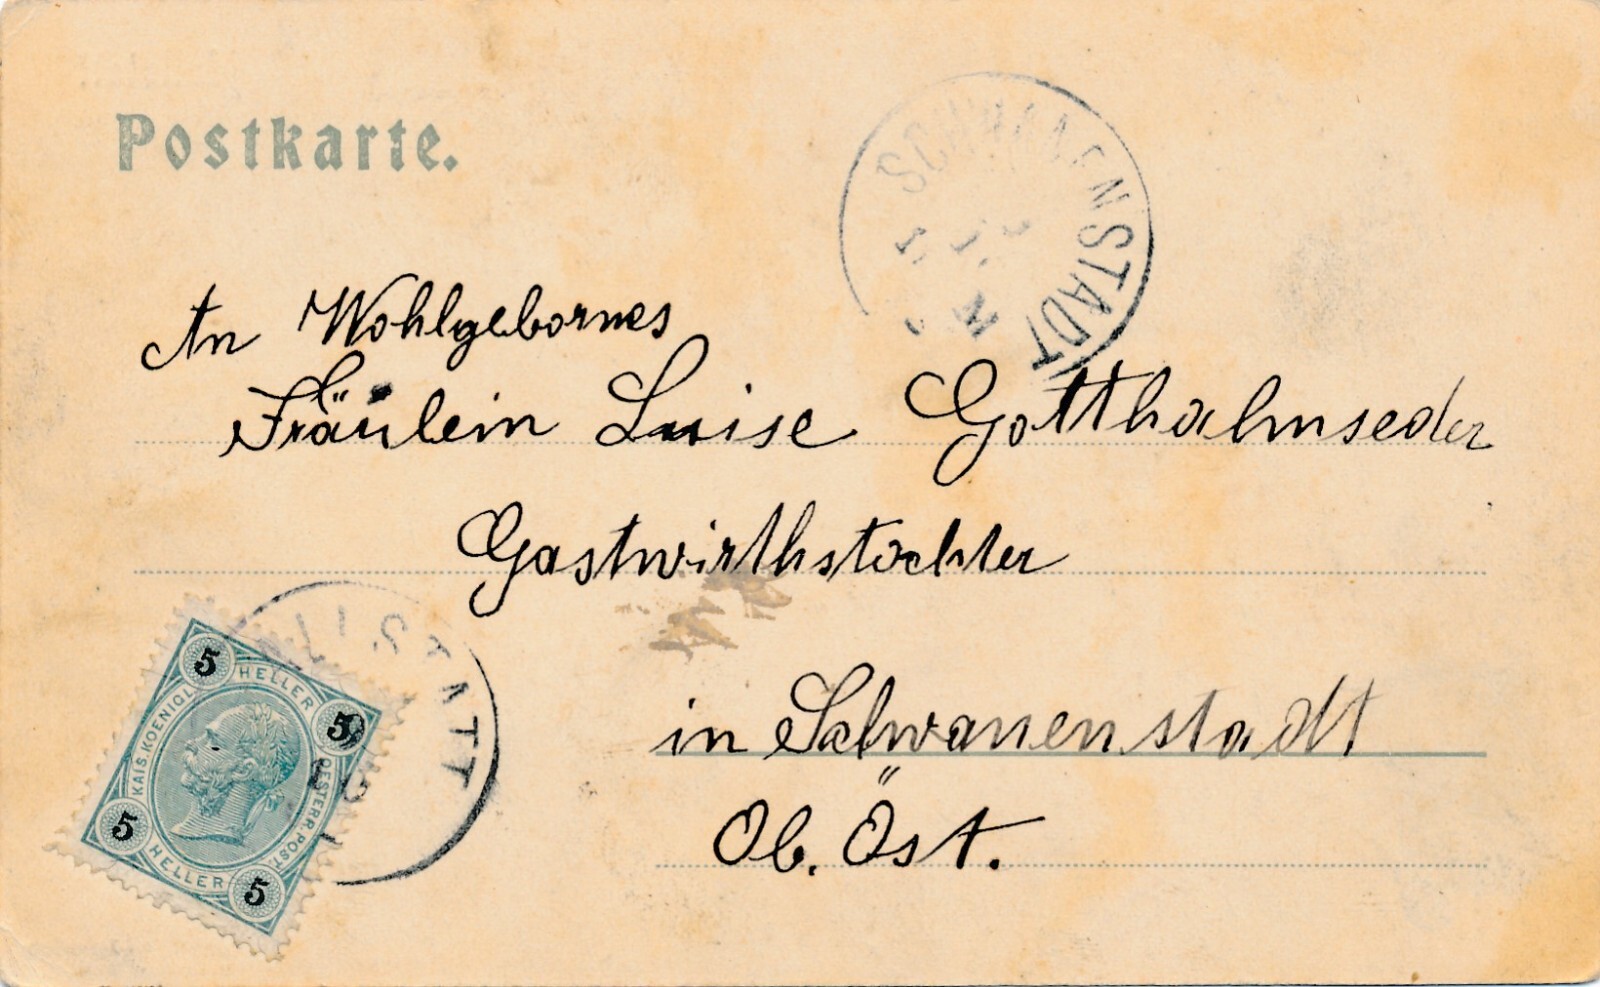 Postkarte.
SCHWANENSTADT
An Wohlgebornes
Fräulein Luise Gotthalmseder
Gastwirthstochter
in Schwanenstadt
Ob. Öst.
5 HELLER 5
KAIS. KOENIGL. OESTERR. POST.
5 HELLER 5